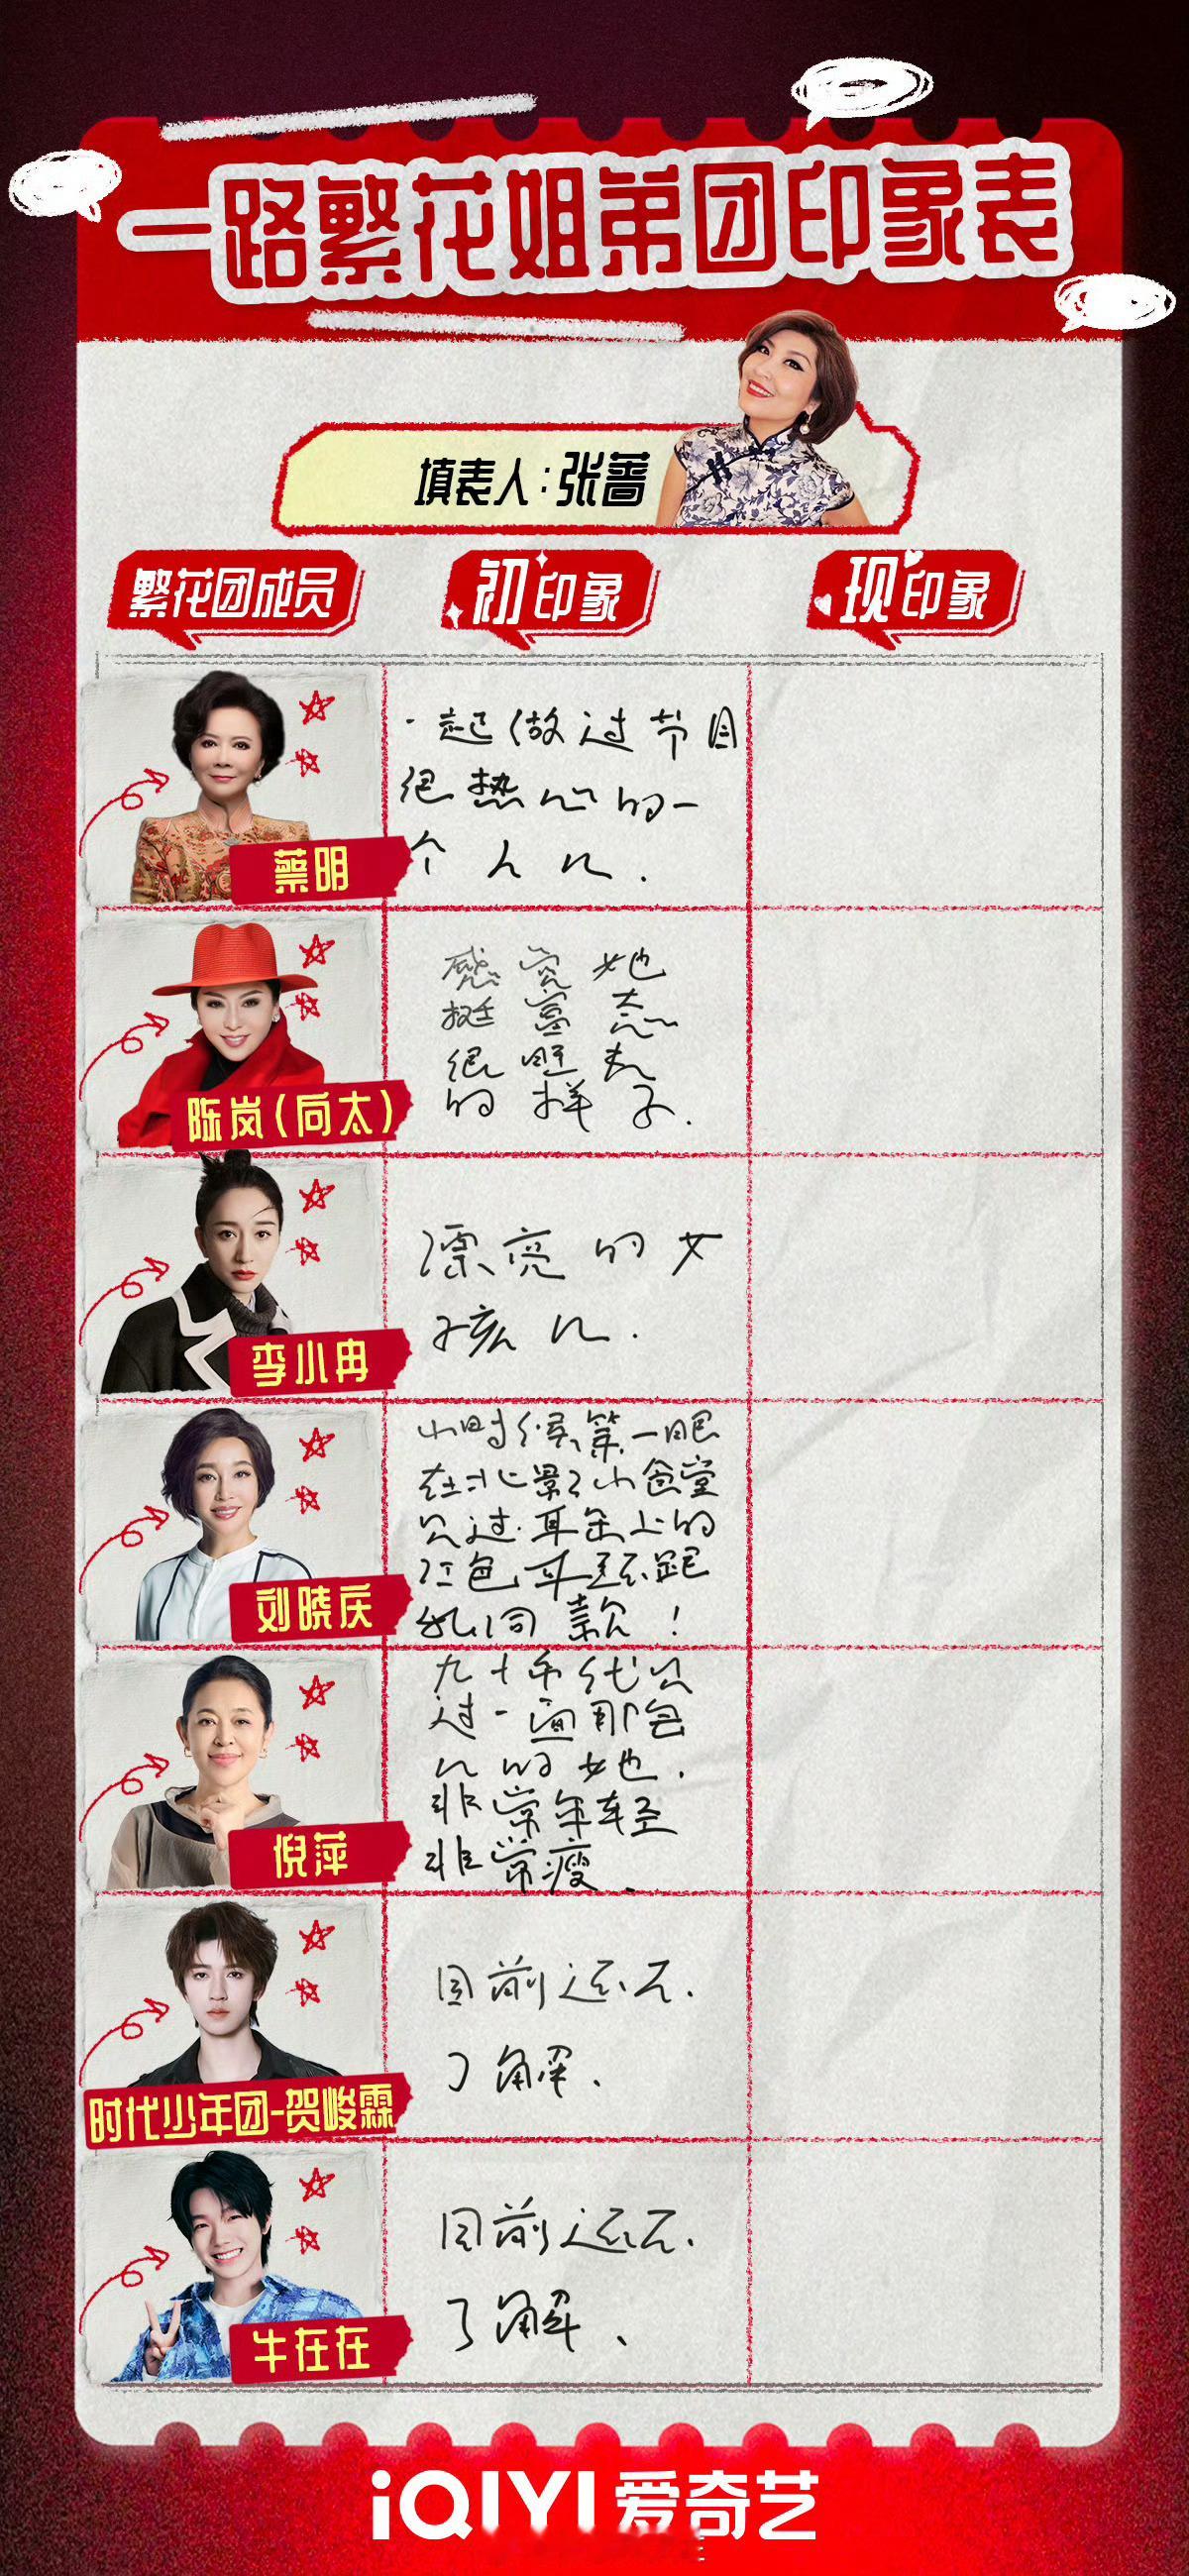 一路繁花姐弟团印象表
填表人：张蔷
繁花团成员 初印象 现印象
蔡明
一起做过节目
很热心的一
个人儿.
陈岚(向太)
感觉她
挺富态
很旺夫
的样子.
李小冉
漂亮的女
孩儿.
刘晓庆
小时候第一眼
在北影小食堂
见过.耳朵上的
红色耳环跟
我同款!
倪萍
九十年代见
过一面那会
儿的她.
非常年轻
非常瘦.
时代少年团-贺峻霖
目前还不.
了解.
牛在在
目前还不.
了解、
iQIYI 爱奇艺